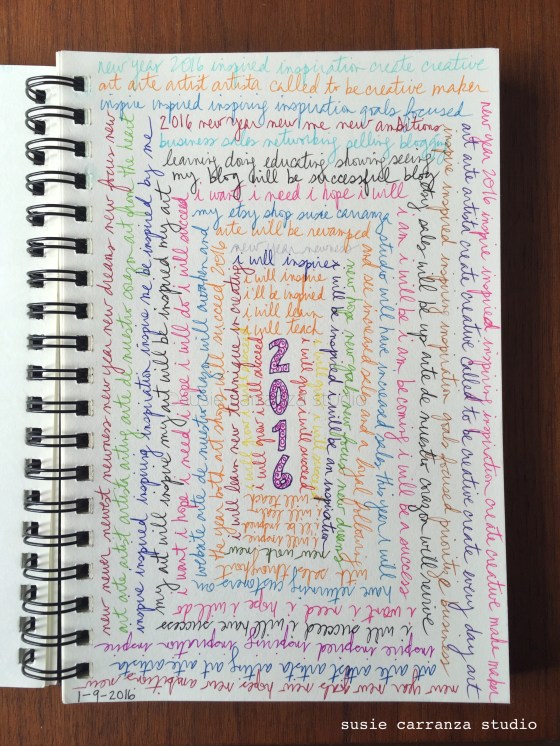 new year 2016 inspired inspiration create creative
art arte artist artista called to be creative maker
inspire inspired inspiring inspiration goals focused
2016 new year new me new ambitions
business sales networking selling blogging
learning doing educating showing seeing
my blog will be successful blog
i want i need i hope i will
my etsy shop susie carranza
arte will be revamped
new year newness
i will inspire
i will inspire
i'll be inspired
i will learn
i will teach
2016
i will grow i will succeed
i will grow i will succeed
i will learn new technique in creating
i will be inspired i will be an inspiration
new hope new goals new focus new dreams
and see increased sales and a loyal following
studio will have increased sales this year i will
i am i will be i am becoming i will be a success
etsy sales will be up arte de nuestro corazon will revive
inspire inspired inspiring inspiration goals focused prioritize business
art arte artista create creative called to be creative create every day art
new year 2016 inspire inspired inspiring inspiration create creative made maker
new newer newest newness new year new dreams new focus new
art arte artist artista acting arte de nuestro corazon art show the heart
inspire inspired inspiring inspiration inspire me be inspired by me
my art will inspire my art will be inspired my art
i want i hope i need i hope i will do i will succeed
website arte de nuestro corazon will awaken and
the year both art shops will succeed 2016
new work new
i will inspire
i'll be inspired
i will learn
i will teach
will sales throughout
have returning customers on
i want i need i hope i will do
i will succeed i will have success
inspire inspired inspiring inspiration inspire
art arte artist artista acting art arte artista
new year new goals new hopes new ambitions new
1-9-2016
susie carranza studio